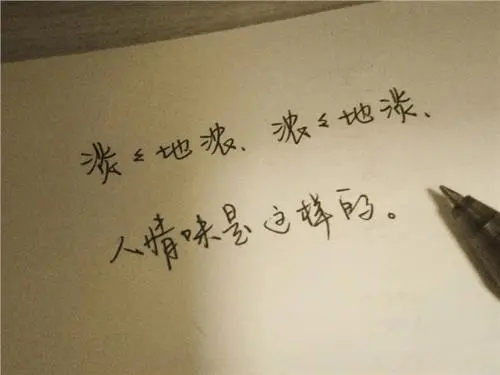 淡々地浓、浓々地淡、
人情味是这样的。